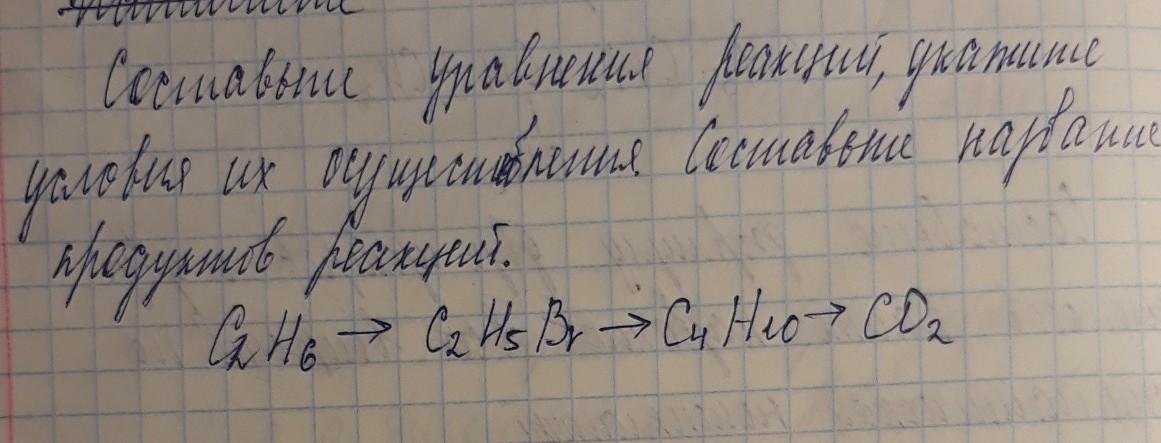 Составьте уравнения реакций, укажите
условия их осуществления Составьте название
продуктов реакций.
C₂H₆ → C₂H₅Br → C₄H₁₀ → CO₂